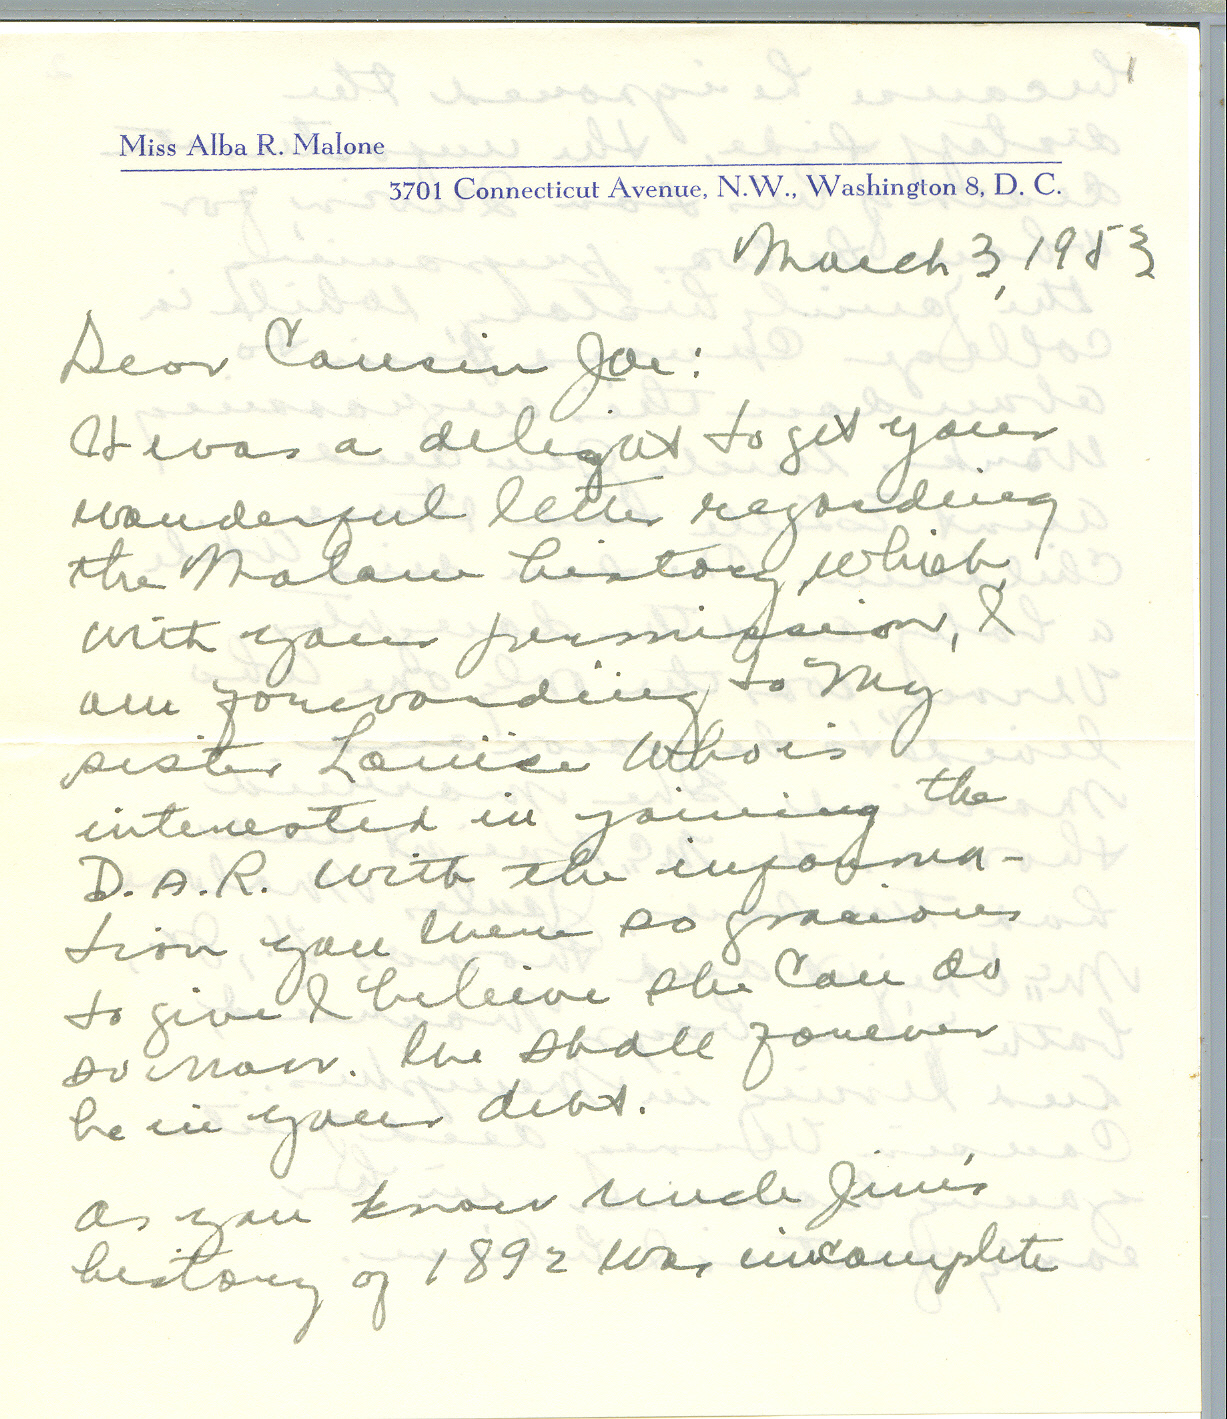 1
Miss Alba R. Malone
3701 Connecticut Avenue, N.W., Washington 8, D. C.
March 3, 1953
Dear Cousin Joe:
It was a delight to get your
wonderful letter regarding
the Malone history, which
with your permission, I
am forwarding to my
sister Louise who is
interested in joining the
D.A.R. With the informa-
tion you were so gracious
to give I believe she can do
so now. We shall forever
be in your debt.
As you know Uncle Jim's
history of 1892 was incomplete